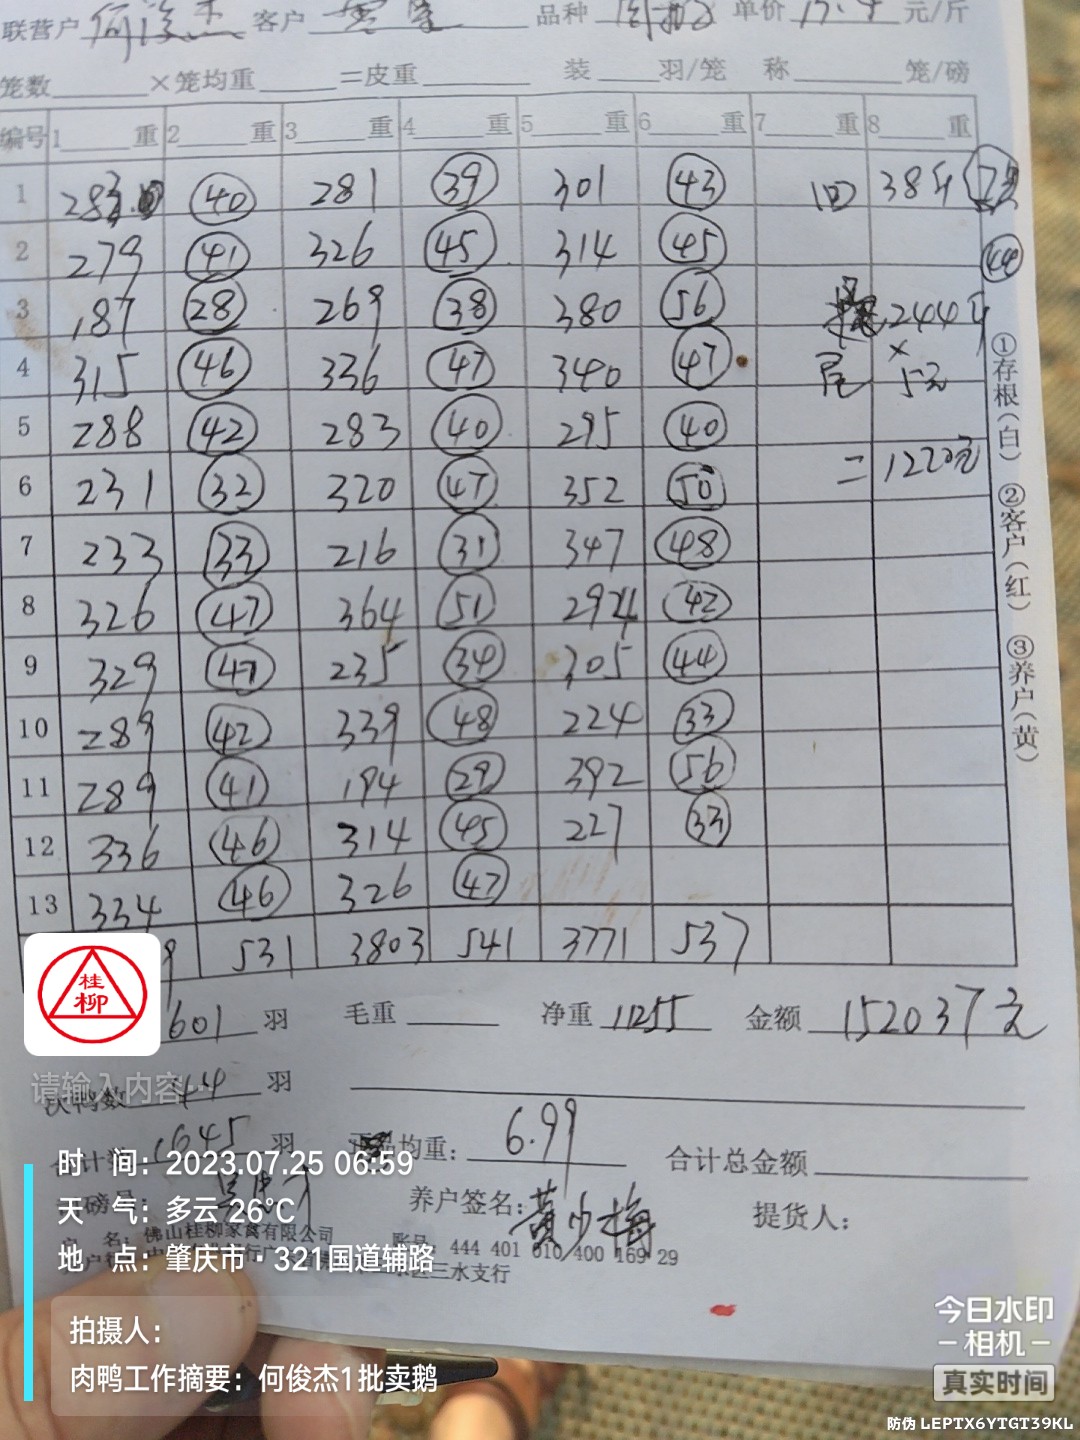 联营户 何俊杰 客户 品种 单价 17.4 元/斤
笼数 ×笼均重 =皮重 装 羽/笼 称 笼/磅
编号 1 重 2 重 3 重 4 重 5 重 6 重 7 重 8 重
1 283 40 281 39 301 43 回 38斤
2 279 41 326 45 314 45 44
3 187 28 269 38 380 56 244斤
4 315 46 336 47 340 47 尾 × 5元
5 288 42 283 40 295 40
6 231 32 320 47 352 50 = 1220元
7 233 33 216 31 347 48
8 326 47 364 51 294 42
9 329 47 235 34 305 44
10 289 42 339 48 224 33
11 289 41 194 29 392 56
12 336 46 314 45 227 33
13 334 46 326 47
9 531 3803 541 3771 537
①存根(白) ②客户(红) ③养户(黄)
桂柳
1601 羽 毛重 净重 11255 金额 152037元
请输入内容...
次鸭数 44 羽
合计 1645 羽 均重: 6.99 合计总金额
磅号: 养户签名: 黄少梅 提货人:
户 名: 佛山桂柳家禽有限公司 账号: 444 401 010 400 169 29
三水支行
时 间: 2023.07.25 06:59
天 气: 多云 26℃
地 点: 肇庆市·321国道辅路
拍摄人:
肉鸭工作摘要: 何俊杰1批卖鹅
今日水印
-相机-
真实时间
防伪 LEPTX6YTGT39KL